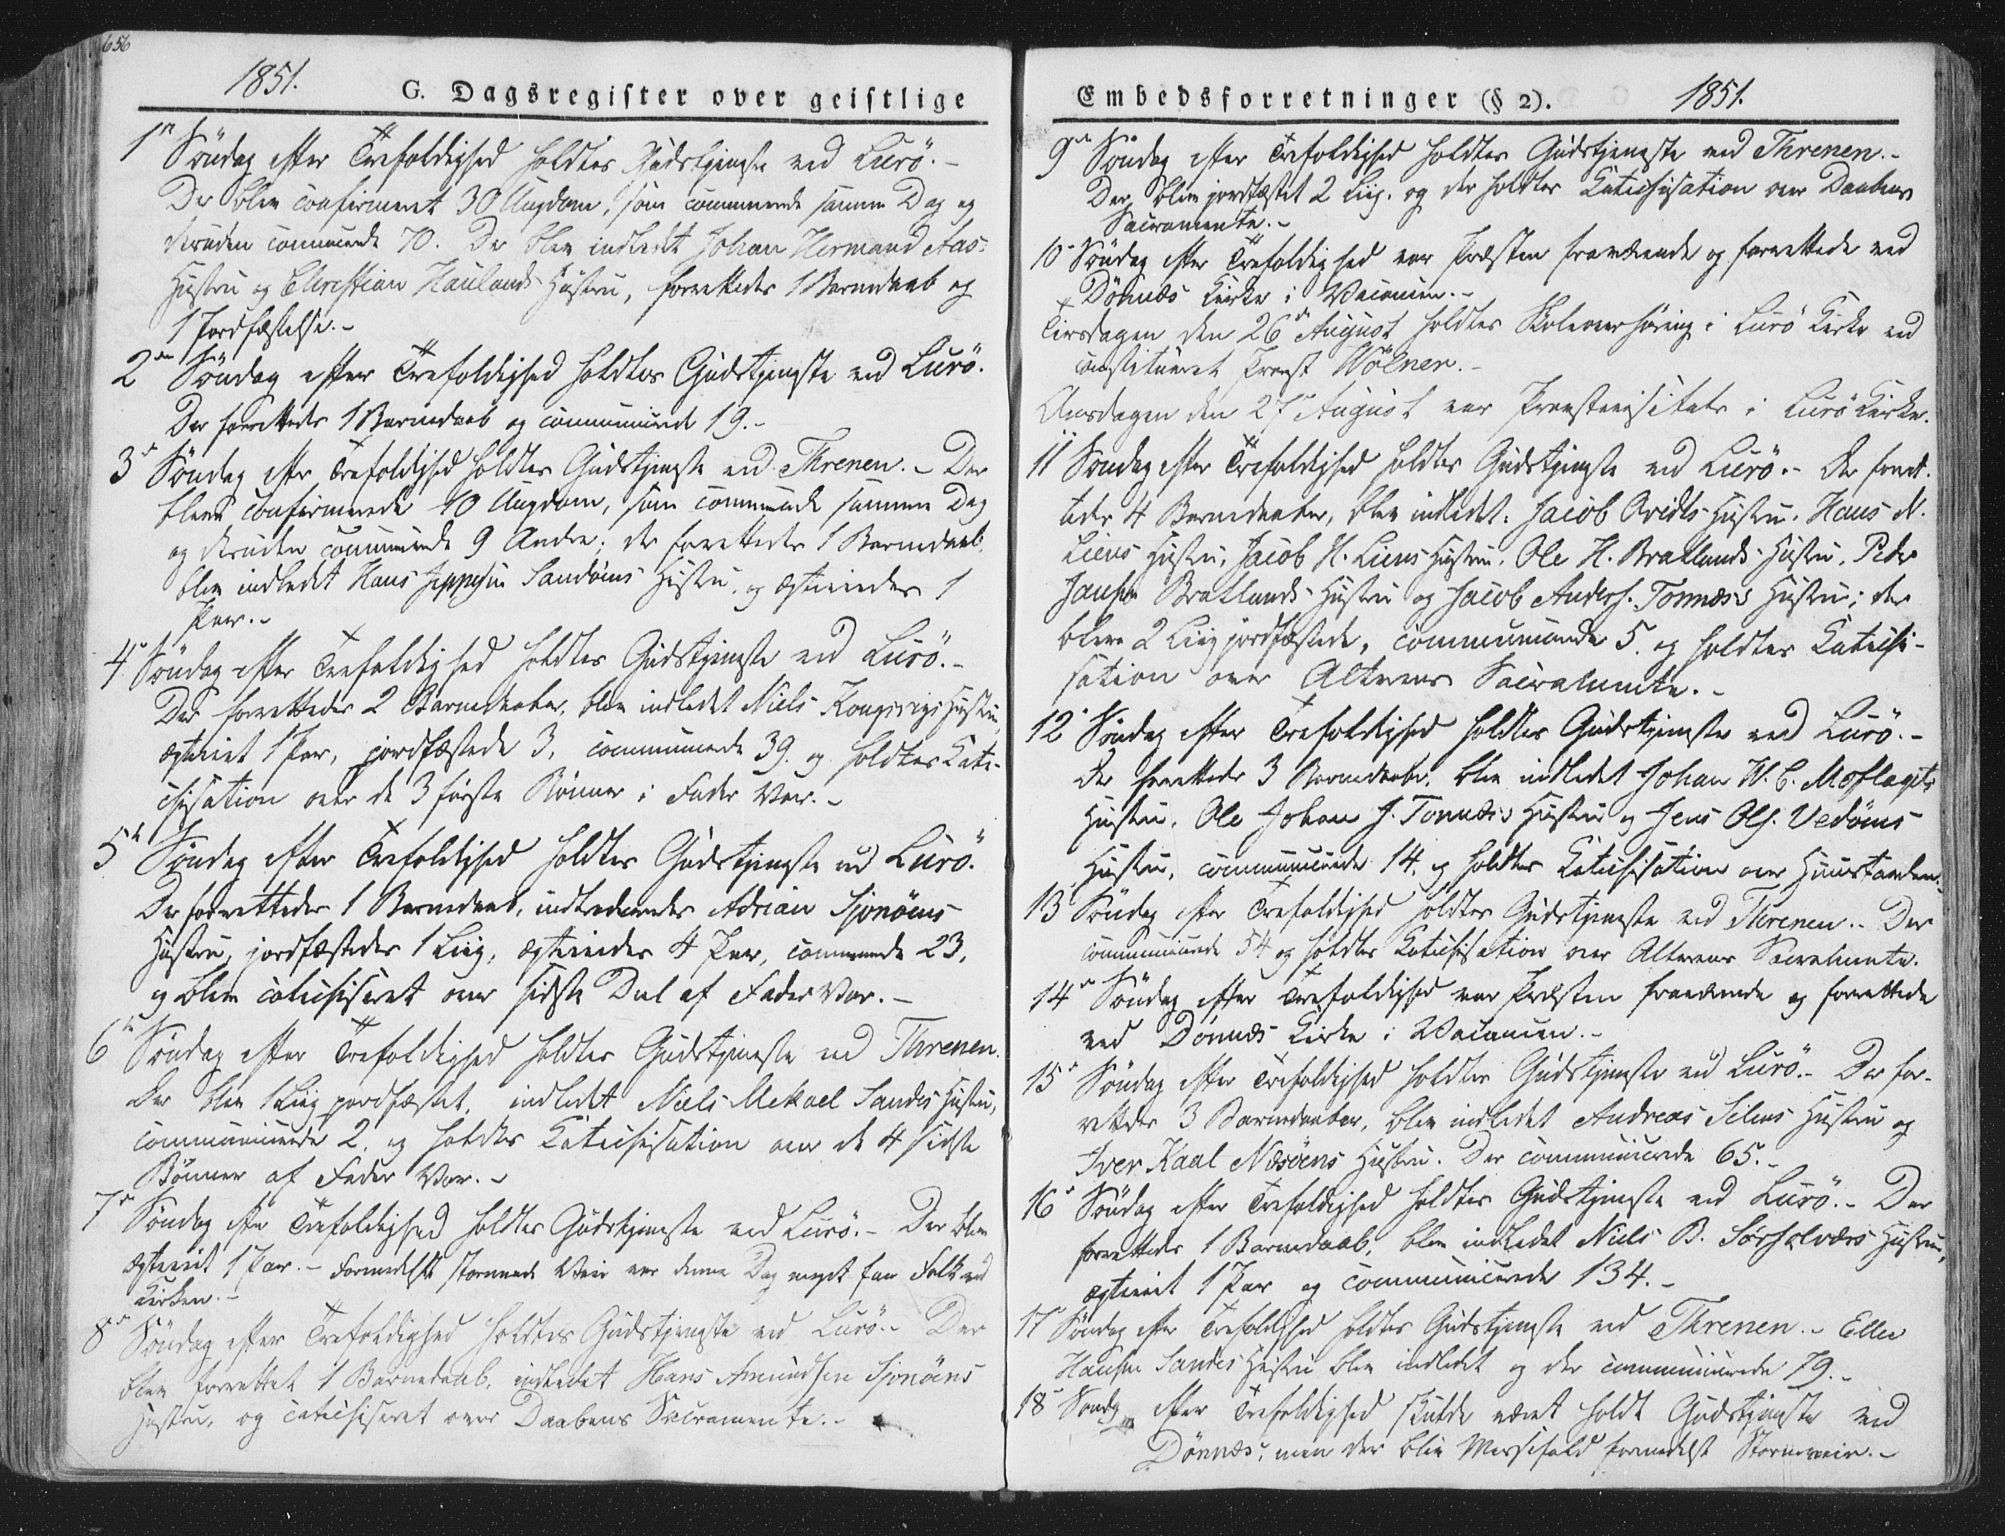 656
1851.
G. Dagsregister over geistlige
1n Søndag efter Trefoldighed holdtes Gudstjeneste ved Lurö. -
Der blev confirmeret 30 Ungdom, som communicerede samme Dag og
desuden communicerede 70. Der blev indledet Johan Hermand Aas-
Hustru og Christian Haulands Hustru, forrettedes 1 Barnedaab og
1 Jordfæstelse. -
2den Søndag efter Trefoldighed holdtes Gudstjeneste ved Lurö.
Der forrettedes 1 Barnedaab og communicerede 19. -
3die Søndag efter Trefoldighed holdtes Gudstjeneste ved Threnen. - Der
bleve confirmerede 10 Ungdom, som communicerede samme Dag
og desuden communicerede 9 Andre; der forrettedes 1 Barnedaab,
blev indledet Hans Jeppesen Sandöens Hustru, og ægteviedes 1
Par. -
4de Søndag efter Trefoldighed holdtes Gudstjeneste ved Lurö. -
Der forrettedes 2 Barnedaaber, blev indledet Niels Kongsvigs Hustru,
ægteviet 1 Par, jordfæstede 3, communicerede 39. og holdtes Cate-
chisation over de 3 første Bönner i Fader Vor. -
5te Søndag efter Trefoldighed holdtes Gudstjeneste ved Lurö.
Der forrettedes 1 Barnedaab, indlededes Adrian Sjonöens
Hustru, jordfæstedes 1 Liig, ægteviedes 4 Par, communicerede 23,
og blev catechiseret over sidste Deel af Fader Vor. -
6te Søndag efter Trefoldighed holdtes Gudstjeneste ved Threnen.
Der blev 1 Liig jordfæstet, indledet Niels Mekael Sandes Hustru,
communicerede 2, og holdtes Catechisation over de 4 sidste
Bönner af Fader Vor. -
7de Søndag efter Trefoldighed holdtes Gudstjeneste ved Lurö. - Der blev
ægteviet 1 Par. - Formedelst stormende Veir var denne Dag meget faa Folk ved
Kirken. -
8de Søndag efter Trefoldighed holdtes Gudstjeneste ved Lurö. - Der
blev forrettet 1 Barnedaab, indledet Hans Amundsen Sjonöens
Hustru, og catechiseret over Daabens Sacramente. -
Embedsforretninger (§ 2).
1851.
9de Søndag efter Trefoldighed holdtes Gudstjeneste ved Threnen. -
Der blev jordfæstet 2 Liig. og der holdtes Catechisation over Daabens
Sacramente. -
10de Søndag efter Trefoldighed var Præsten fraværende og forrettede ved
Dönnæs Kirke i Vacancen. -
Tirsdagen den 26de August holdtes Skoleoverhöring i Lurö Kirke ved
constitueret Provst Wölner. -
Onsdagen den 27de August var Provstevisitats i Lurö Kirke.
11 Søndag efter Trefoldighed holdtes Gudstjeneste ved Lurö. - Der forret-
tedes 4 Barnedaaber, blev indledet: Jacob Qvidts Hustru, Hans N.
Liens Hustru, Jacob H. Liens Hustru, Ole H. Bratlands Hustru, Peder
Jansen Bratlands Hustru og Jacob Anders. Tonnæs's Hustru; der
bleve 2 Liig jordfæstede, communicerede 5. og holdtes Catechi-
sation over Alterens Sacramente. -
12 Søndag efter Trefoldighed holdtes Gudstjeneste ved Lurö. -
Der forrettedes 3 Barnedaaber, blev indledet Johan W. C.
Hustru, Ole Johan J. Tonnæs's Hustru og Jens Ols. Vedöens
Hustru, communicerede 14. og holdtes Catechisation over Huustavlen.
13 Søndag efter Trefoldighed holdtes Gudstjeneste ved Threnen. - Der
communicerede 54 og holdtes Catechisation over Alterens Sacramente.
14de Søndag efter Trefoldighed var Præsten fraværende og forrettede
ved Dönnæs Kirke i Vacancen. -
15de Søndag efter Trefoldighed holdtes Gudstjeneste ved Lurö. - Der for-
rettedes 3 Barnedaaber, blev indledet Andreas Selens Hustru og
Iver Kaal Næsöens Hustru. Der communicerede 65. -
16de Søndag efter Trefoldighed holdtes Gudstjeneste ved Lurö. - Der
forrettedes 1 Barnedaab, blev indledet Niels B. Sörselværs Hustru,
ægteviet 1 Par og communicerede 134. -
17 Søndag efter Trefoldighed holdtes Gudstjeneste ved Threnen. - Ellen
Hansen Sandes Hustru blev indledet og der communicerede 79. -
18 Søndag efter Trefoldighed skulde været holdt Gudstjeneste ved
Dönnæs, men der blev Messefald formedelst Stormveir. -